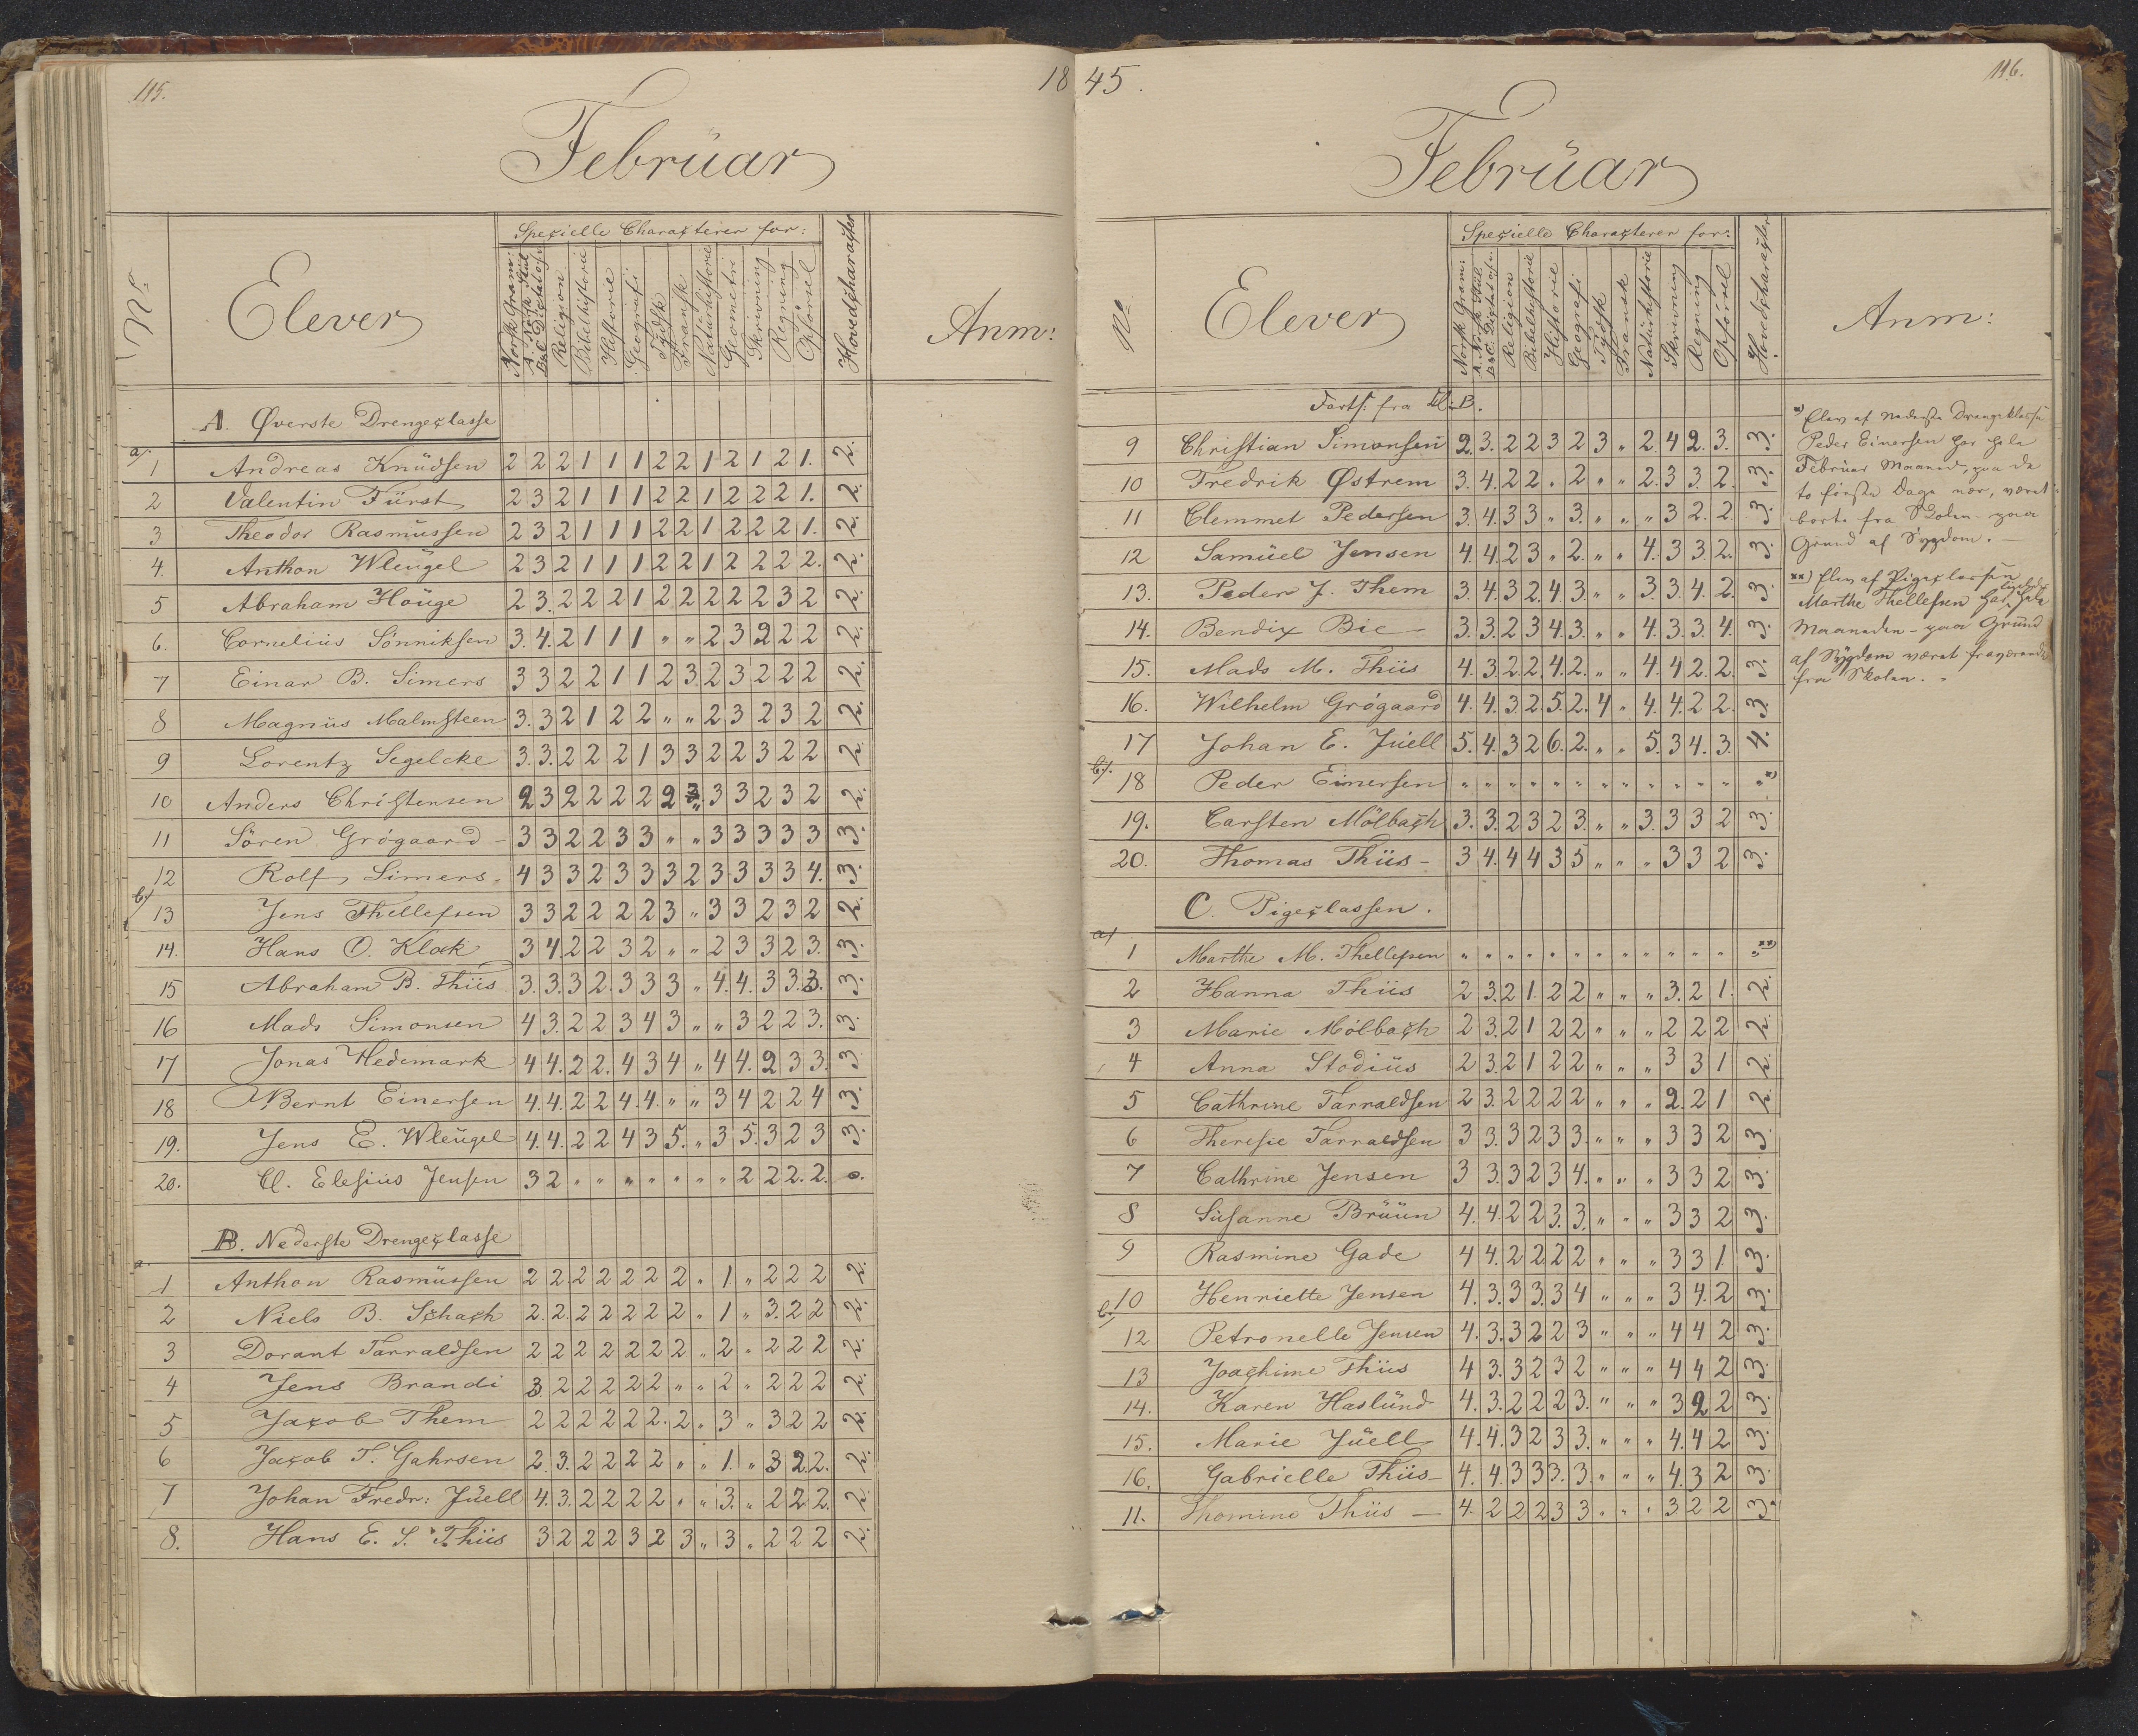 115.
18
Februar
Nº
Elever
Specielle Characterer for:
Norsk Gram:
A. Norsk Stiil
B & C Dictatøv.
Religion
Bibelhistorie
Historie
Geografi
Tydsk
Fransk
Naturhistorie
Geometri
Skrivning
Regning
Opførsel
Hovedcharacter
Anm:
A. Øverste Drengeclasse
a/. 1 Andreas Knudsen 2 2 2 1 1 1 2 2 1 2 1 2 1. 2.
2 Valentin Fürst 2 3 2 1 1 1 2 2 1 2 2 2 1. 2.
3 Theodor Rasmussen 2 3 2 1 1 1 2 2 1 2 2 2 1. 2.
4. Anthon Wleugel 2 3 2 1 1 1 2 2 1 2 2 2 2. 2.
5 Abraham Houge 2 3. 2 2 2 1 2 2 2 2 2 3 2 2.
6. Cornelius Sønniksen 3. 4. 2 1 1 1 " " 2 3 2 2 2 2.
7 Einar B. Simers 3 3 2 2 1 1 2 3 2 3 2 2 2 2.
8 Magnus Malmsteen 3. 3 2 1 2 2 " " 2 3 2 3 2 2.
9 Lorentz Segelcke 3. 3. 2 2 2 1 3 3 2 2 3 2 2 2.
10 Anders Christensen 2 3 2 2 2 2 2 " 3 3 2 3 2 2.
11 Søren Grøgaard 3 3 2 2 3 3 " " 3 3 3 3 3 3.
12 Rolf Simers 4 3 3 2 3 3 3 2 3 3 3 3 4. 3.
b/ 13 Jens Thellefsen 3 3 2 2 2 2 3 " 3 3 2 3 2 2.
14. Hans O. Klak 3 4. 2 2 3 2 " " 2 3 3 2 3. 3.
15 Abraham B. Thiis 3. 3. 3 2. 3 3 3 " 4. 4. 3 3. 3. 3.
16 Mads Simonsen 4 3. 2 2 3 4 3 " " 3 2 2 3. 3.
17 Jonas Hedemark 4 4. 2 2. 4 3 4 " 4 4. 2 3 3. 3
18 Bernt Einersen 4. 4. 2 2 4. 4. " " 3 4 2 2 4 3.
19. Jens E. Wleugel 4. 4. 2 2 4 3 5. " 3 5. 3 2 3 3.
20. Cl. Elesius Jensen 3 2 " " " " " " " 2 2 2. 2. 0.
B. Nederste Drengeclasse
a. 1 Anthon Rasmussen 2 2. 2 2 2 2 2 " 1. " 2 2 2 2.
2 Niels B. Schach 2. 2. 2 2 2 2 2 " 1 " 3. 2 2 2.
3 Dorant Tarraldsen 2 2 2 2 2 2 2 " 2 " 2 2 2 2.
4 Jens Brandi 3 2 2 2 2 2 " " 2 " 2 2 2 2.
5 Jacob Them 2 2 2 2 2 2. 2 " 3 " 3 2 2 2.
6 Jacob T. Gahrsen 2. 3. 2 2 2 2 " " 1. " 3 2. 2. 2.
7 Johan Fredr: Juell 4. 3. 2 2 2 2 " " 3. " 2 2 2. 2
8. Hans E. S. Thiis 3 2 2 2 3 2 3 " 3 " 2 2 2 2.
45.
116.
Februar
Nº
Elever
Specielle Characterer for:
Norsk Gram:
A. Norsk Stiil
B & C. Dictatøv.
Religion
Bibelhistorie
Historie
Geografi
Tydsk
Fransk
Naturhistorie
Skrivning
Regning
Opførsel
Hovedcharacter
Anm:
Forts: fra Cl: B.
9 Christian Simonsen 2. 3. 2 2 3 2 3 " 2. 4 2. 3. 3.
10 Fredrik Østrem 3. 4. 2 2 " 2 " " 2. 3 3. 2. 3.
11 Clemmet Pedersen 3. 4. 3 3 " 3. " " " 3 2. 2. 3.
12 Samuel Jensen 4 4. 2 3 " 2. " " 4. 3 3. 2. 3.
13. Peder J. Them 3. 4. 3 2. 4. 3. " " 3. 3. 4. 2. 3.
14. Bendix Bie 3. 3. 2 3 4. 3. " " 4. 3. 3. 4. 3.
15. Mads M. Thiis 4. 3. 2 2. 4 2. " " 4. 4. 2. 2. 3.
16. Wilhelm Grøgaard 4. 4. 3 2. 5. 2. 4 " 4. 4. 2 2. 3.
17 Johan E. Juell 5. 4. 3 2 6. 2. " " 5. 3 4. 3. 4.
b/. 18 Peder Einersen " " " " " " " " " " " " " *)
19. Carsten Mölbach 3. 3. 2 3 2 3. " " 3. 3 3 2 3.
20. Thomas Thiis 3 4. 4 4 3 5 " " " 3 3 2 3.
*) Elev af nederste Drengeklasse
Peder Einersen har hele
Februar Maaned, paa de
to første Dage nær, været
borte fra Skolen paa
Grund af Sygdom. —
**) Elev af Pigeclassen
Marthe Thellefsen har ligeledes hele
Maaneden – paa Grund
af Sygdom været fraværende
fra Skolen.
C. Pigeclassen.
a/ 1 Marthe M. Thellefsen " " " " " " " " " " " " " **)
2 Hanna Thiis 2 3. 2 1. 2 2 " " " 3. 2 1. 2.
3 Marie Mölbach 2 3. 2 1 2 2 " " " 2 2 2 2.
4 Anna Stodius 2 3. 2 1 2 2 " " " 3 3 1 2.
5 Cathrine Tarraldsen 2 3. 2 2 2 2 " " " 2. 2 1 2.
6 Theresie Tarraldsen 3 3. 3 2 3 3. " " " 3 3 2 3.
7 Cathrine Jensen 3 3. 3 2 3 4. " " " 3 3 2 3.
8 Susanne Bruun 4. 4. 2 2 3. 3. " " " 3 3 2 3.
9 Rasmine Gade 4 4. 2 2. 2 2 " " " 3 3 1. 3.
b. 10 Henriette Jensen 4. 3. 3 3. 3 4 " " " 3 4. 2 3.
12 Petronelle Jensen 4. 3. 3 2 2 3 " " " 4 4 2 3.
13 Joachime Thiis 4 3. 3 2 3 2 " " " 4 4 2 3.
14. Karen Haslund 4. 3. 2 2 2 3. " " " 3 2 2 3.
15. Marie Juell 4. 4. 3 2 3 3. " " " 4. 4 2 3.
16. Gabrielle Thiis 4. 4. 3 3 3. 3. " " " 4. 3 2 3.
11. Thomine Thiis 4. 2 2 2 3 3 " " " 3 2 2 3.